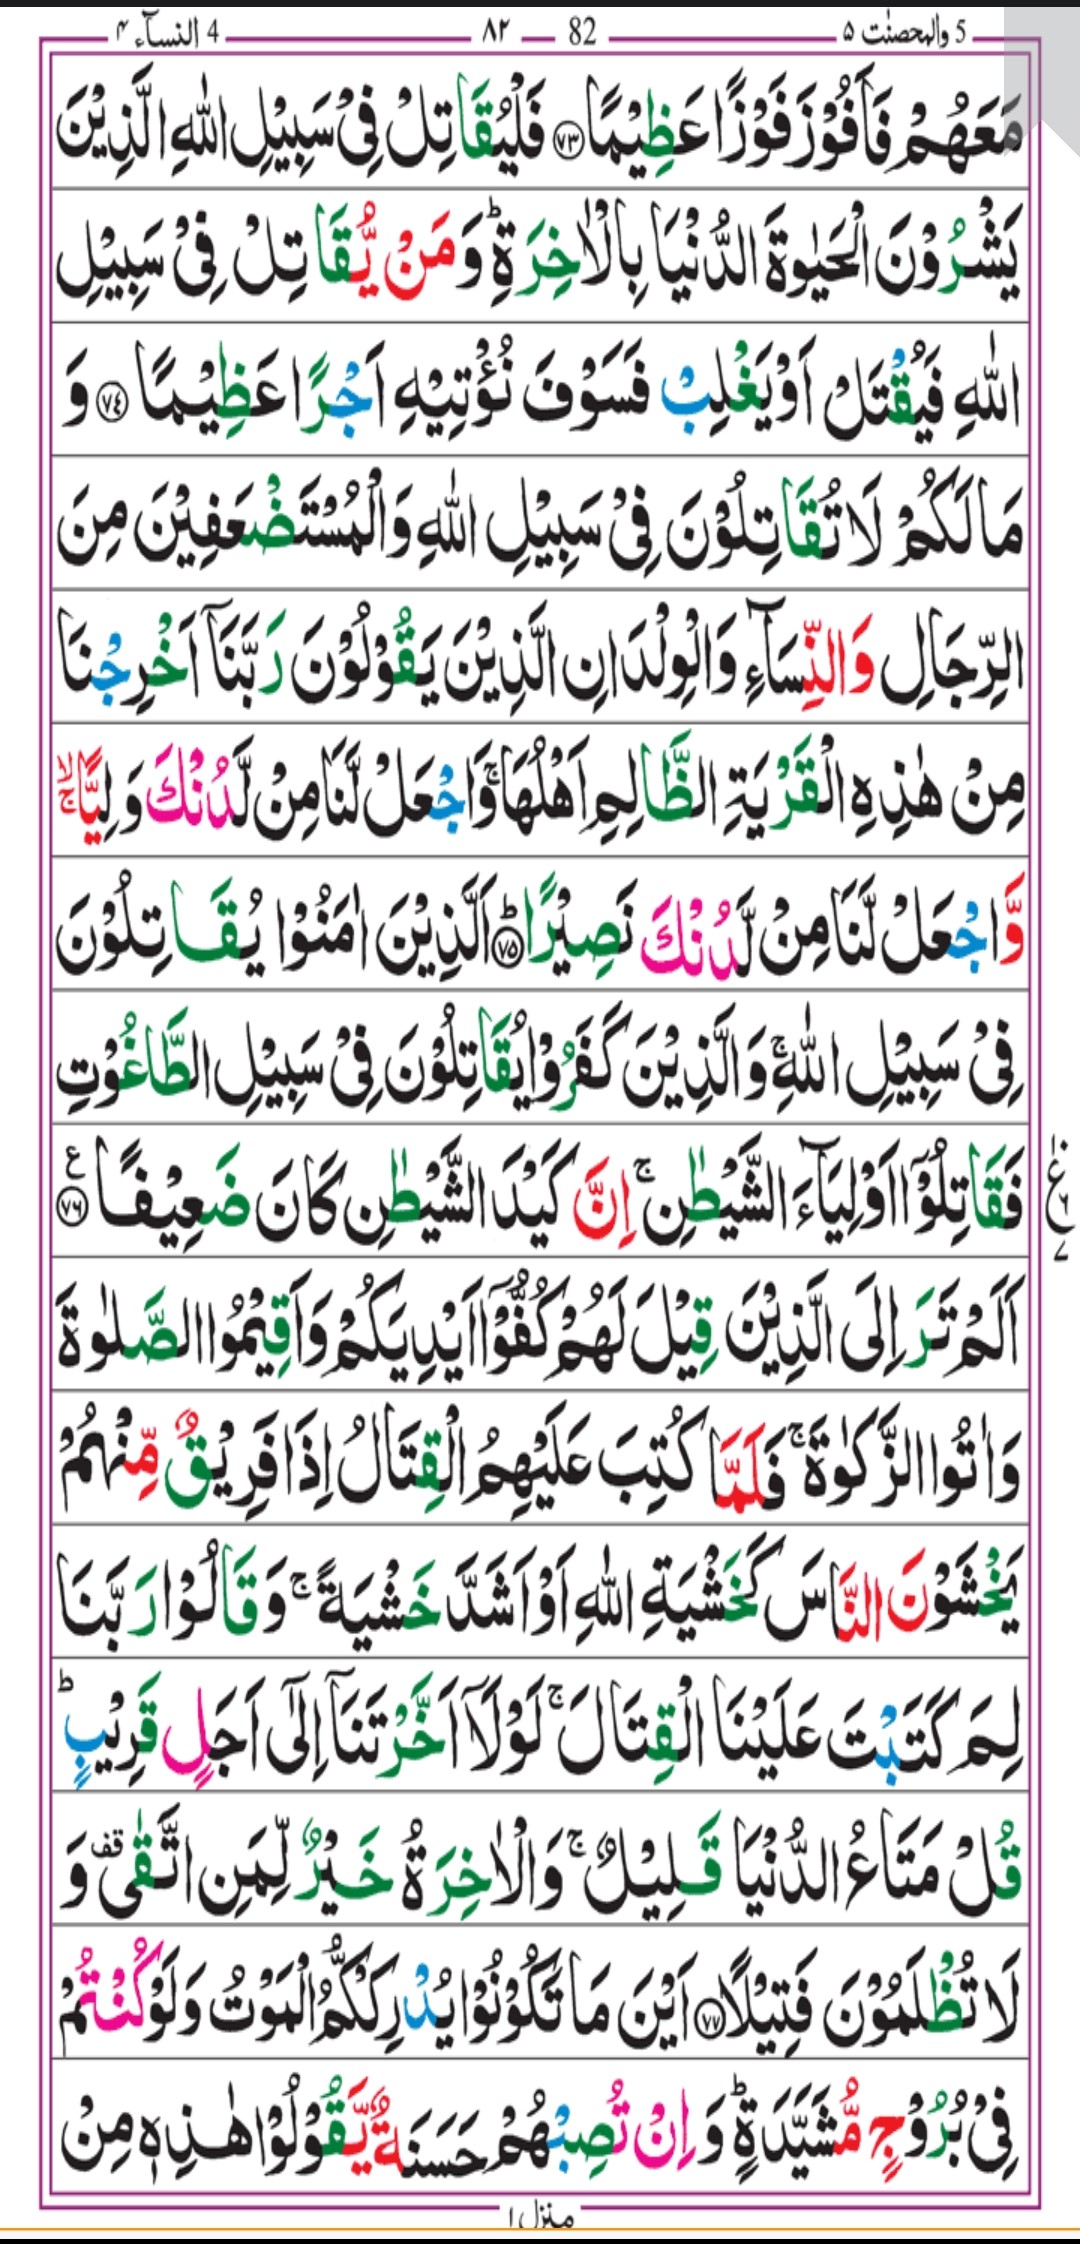 5 والمحصنٰت ۵ 82 ۸۲ 4 النسآء ۴
مَعَهُمْ فَاَفُوْزَ فَوْزًا عَظِیْمًا ﴿۷۳﴾ فَلْیُقَاتِلْ فِیْ سَبِیْلِ اللّٰهِ الَّذِیْنَ
یَشْرُوْنَ الْحَیٰوةَ الدُّنْیَا بِالْاٰخِرَةِ ؕ وَ مَنْ یُّقَاتِلْ فِیْ سَبِیْلِ
اللّٰهِ فَیُقْتَلْ اَوْ یَغْلِبْ فَسَوْفَ نُؤْتِیْهِ اَجْرًا عَظِیْمًا ﴿۷۴﴾ وَ
مَا لَكُمْ لَا تُقَاتِلُوْنَ فِیْ سَبِیْلِ اللّٰهِ وَالْمُسْتَضْعَفِیْنَ مِنَ
الرِّجَالِ وَالنِّسَآءِ وَالْوِلْدَانِ الَّذِیْنَ یَقُوْلُوْنَ رَبَّنَاۤ اَخْرِجْنَا
مِنْ هٰذِهِ الْقَرْیَةِ الظَّالِمِ اَهْلُهَا ۚ وَاجْعَلْ لَّنَا مِنْ لَّدُنْكَ وَلِیًّا ۙۚ
وَّاجْعَلْ لَّنَا مِنْ لَّدُنْكَ نَصِیْرًا ؕ﴿۷۵﴾ اَلَّذِیْنَ اٰمَنُوْا یُقَاتِلُوْنَ
فِیْ سَبِیْلِ اللّٰهِ ۚ وَالَّذِیْنَ كَفَرُوْا یُقَاتِلُوْنَ فِیْ سَبِیْلِ الطَّاغُوْتِ
فَقَاتِلُوْۤا اَوْلِیَآءَ الشَّیْطٰنِ ۚ اِنَّ كَیْدَ الشَّیْطٰنِ كَانَ ضَعِیْفًا ﴿۷۶﴾ ع
اَلَمْ تَرَ اِلَی الَّذِیْنَ قِیْلَ لَهُمْ كُفُّوْۤا اَیْدِیَكُمْ وَاَقِیْمُوا الصَّلٰوةَ
وَاٰتُوا الزَّكٰوةَ ۚ فَلَمَّا كُتِبَ عَلَیْهِمُ الْقِتَالُ اِذَا فَرِیْقٌ مِّنْهُمْ
یَخْشَوْنَ النَّاسَ كَخَشْیَةِ اللّٰهِ اَوْ اَشَدَّ خَشْیَةً ۚ وَقَالُوْا رَبَّنَا
لِمَ كَتَبْتَ عَلَیْنَا الْقِتَالَ ۚ لَوْلَاۤ اَخَّرْتَنَاۤ اِلٰۤی اَجَلٍ قَرِیْبٍ ؕ
قُلْ مَتَاعُ الدُّنْیَا قَلِیْلٌ ۚ وَالْاٰخِرَةُ خَیْرٌ لِّمَنِ اتَّقٰی قف وَ
لَا تُظْلَمُوْنَ فَتِیْلًا ﴿۷۷﴾ اَیْنَ مَا تَكُوْنُوْا یُدْرِكْكُّمُ الْمَوْتُ وَلَوْ كُنْتُمْ
فِیْ بُرُوْجٍ مُّشَیَّدَةٍ ؕ وَ اِنْ تُصِبْهُمْ حَسَنَةٌ یَّقُوْلُوْا هٰذِهٖ مِنْ
منزل ۱